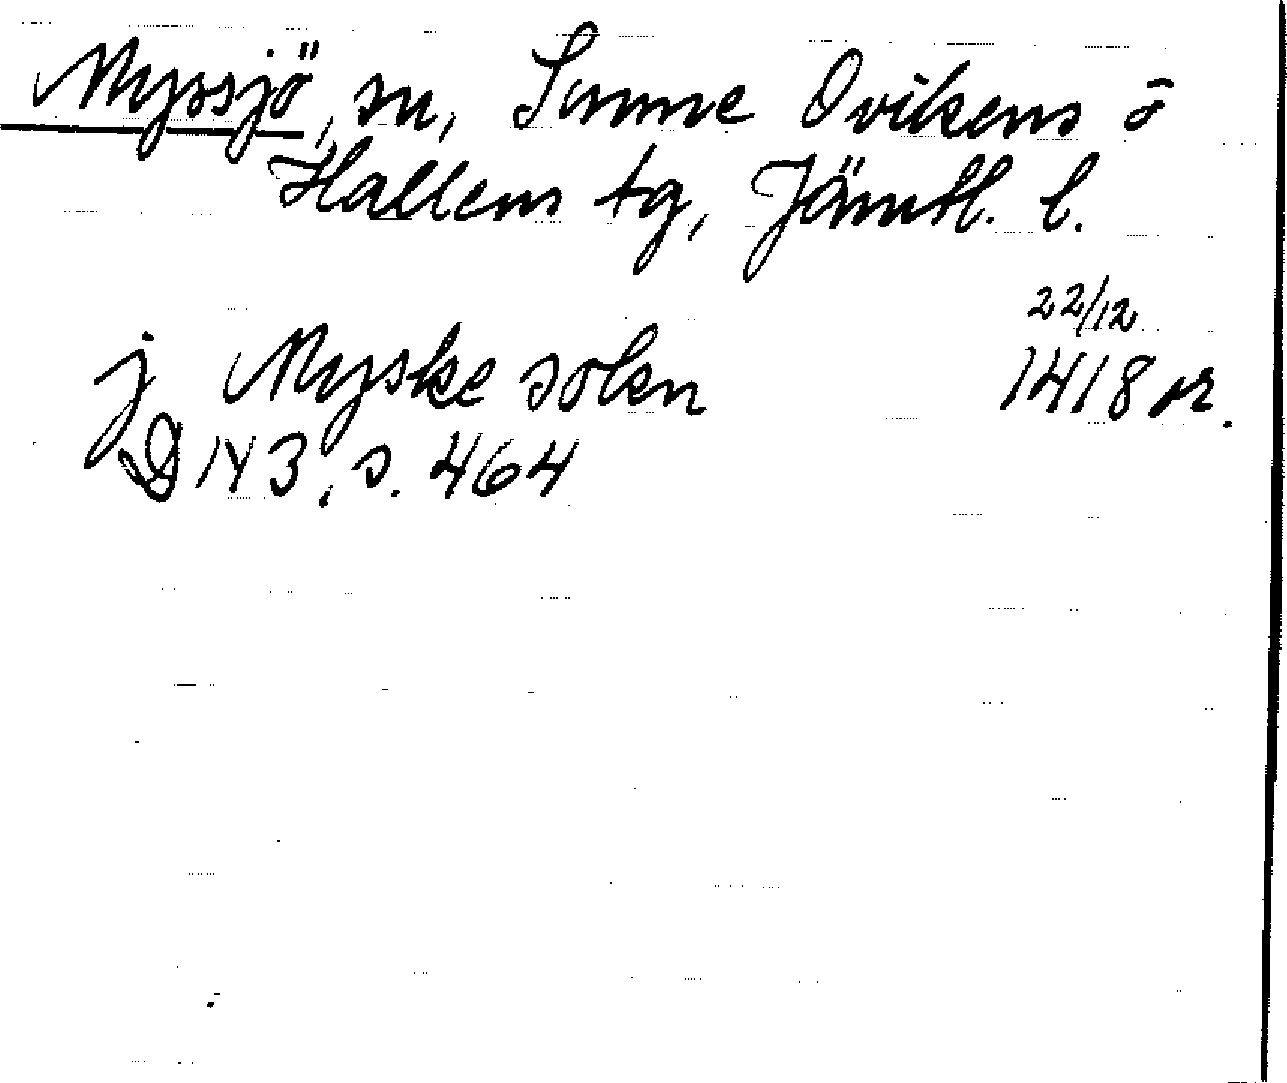 Myssjö, sn, Sunne Ovikens o
Hallens tg, Jämtl. l.
22/12
j Myske sokn 1418 or.
D 143, s. 464